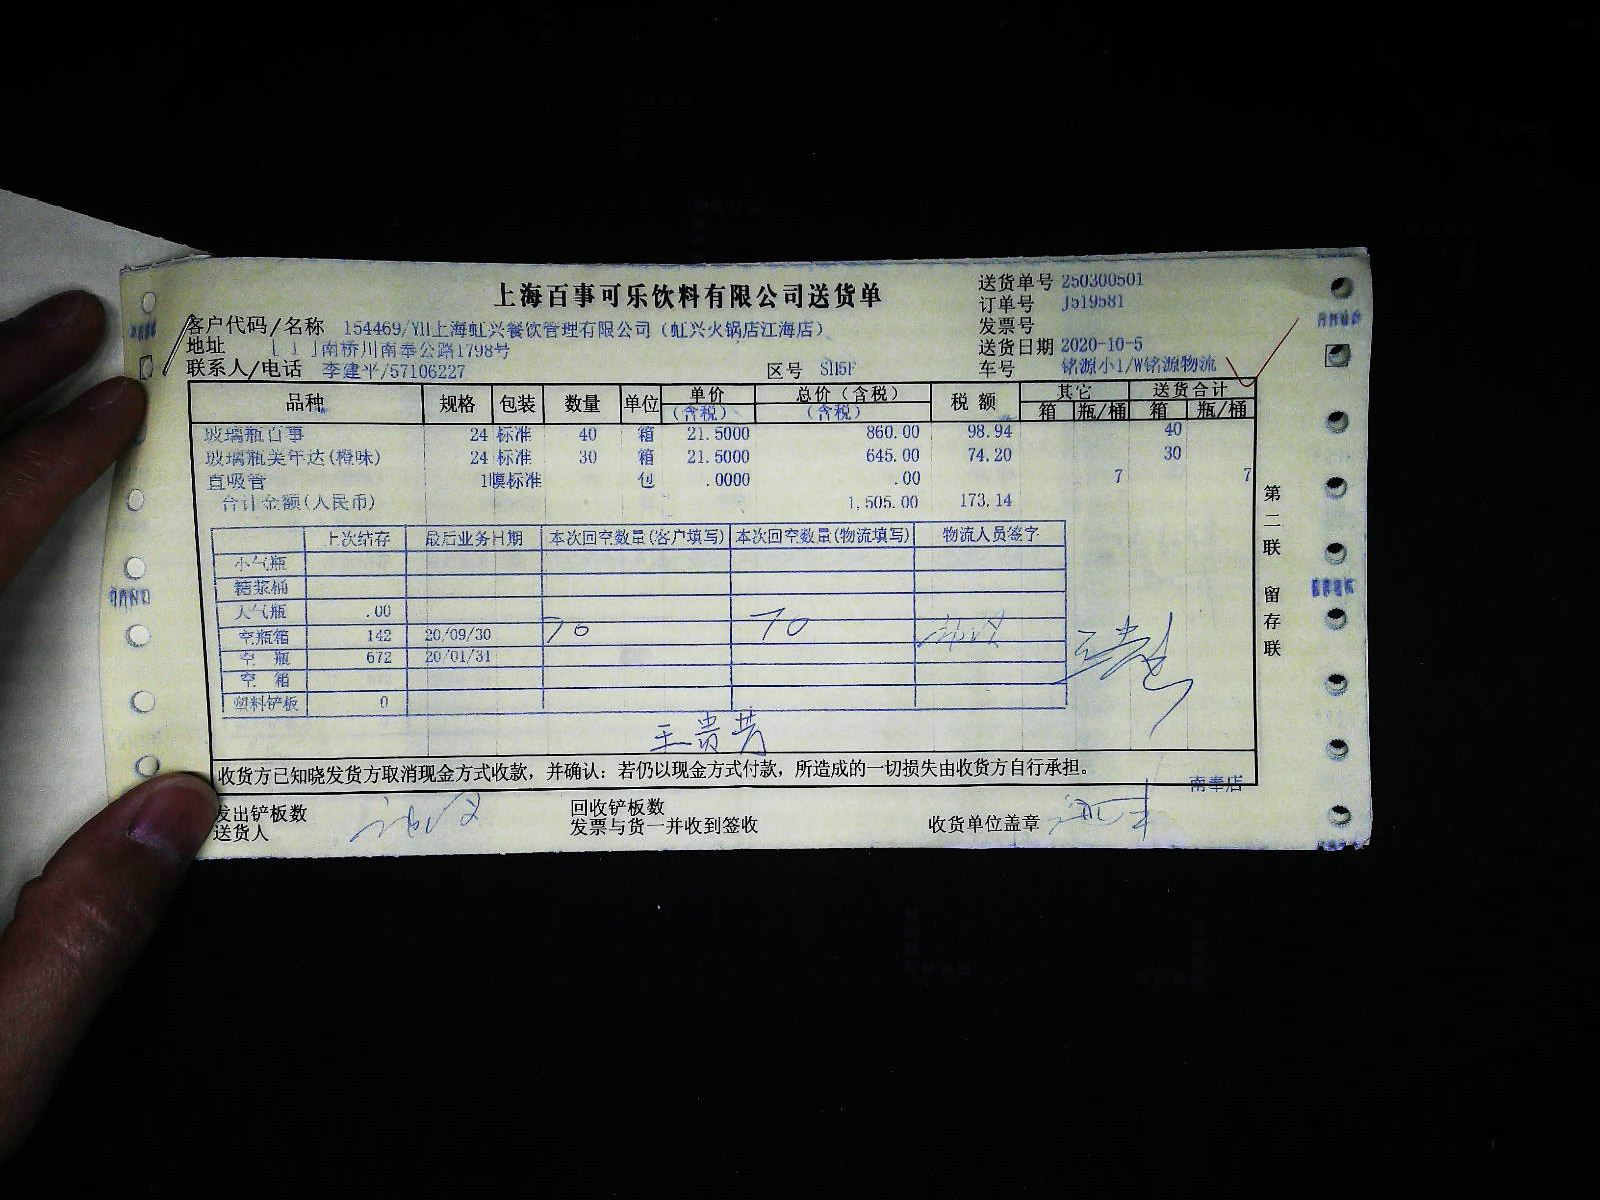 上海百事可乐饮料有限公司送货单
送货单号 250300501
订单号 J519581
发票号
送货日期 2020-10-5
车号 铭源小1/W铭源物流
客户代码/名称 154469/YH上海虹兴餐饮管理有限公司（虹兴火锅店江海店）
地址 南桥川南奉公路1798号
联系人/电话 李建平/57106227 区号 SH5F
品种 规格 包装 数量 单位 单价(含税) 总价（含税）(含税) 税额 其它 箱 瓶/桶 送货合计 箱 瓶/桶
玻璃瓶百事 24 标准 40 箱 21.5000 860.00 98.94 40
玻璃瓶美年达(橙味) 24 标准 30 箱 21.5000 645.00 74.20 30
直吸管 1膜标准 包 .0000 .00 7 7
合计金额(人民币) 1,505.00 173.14
上次结存 最后业务日期 本次回空数量(客户填写) 本次回空数量(物流填写) 物流人员签字
小气瓶
糖浆桶
大气瓶 .00
空瓶箱 142 20/09/30 70 70
空 瓶 672 20/01/31
空 箱
塑料铲板 0
王贵芳
收货方已知晓发货方取消现金方式收款，并确认：若仍以现金方式付款，所造成的一切损失由收货方自行承担。
南奉店
发出铲板数 回收铲板数
送货人 发票与货一并收到签收 收货单位盖章
第二联 留存联